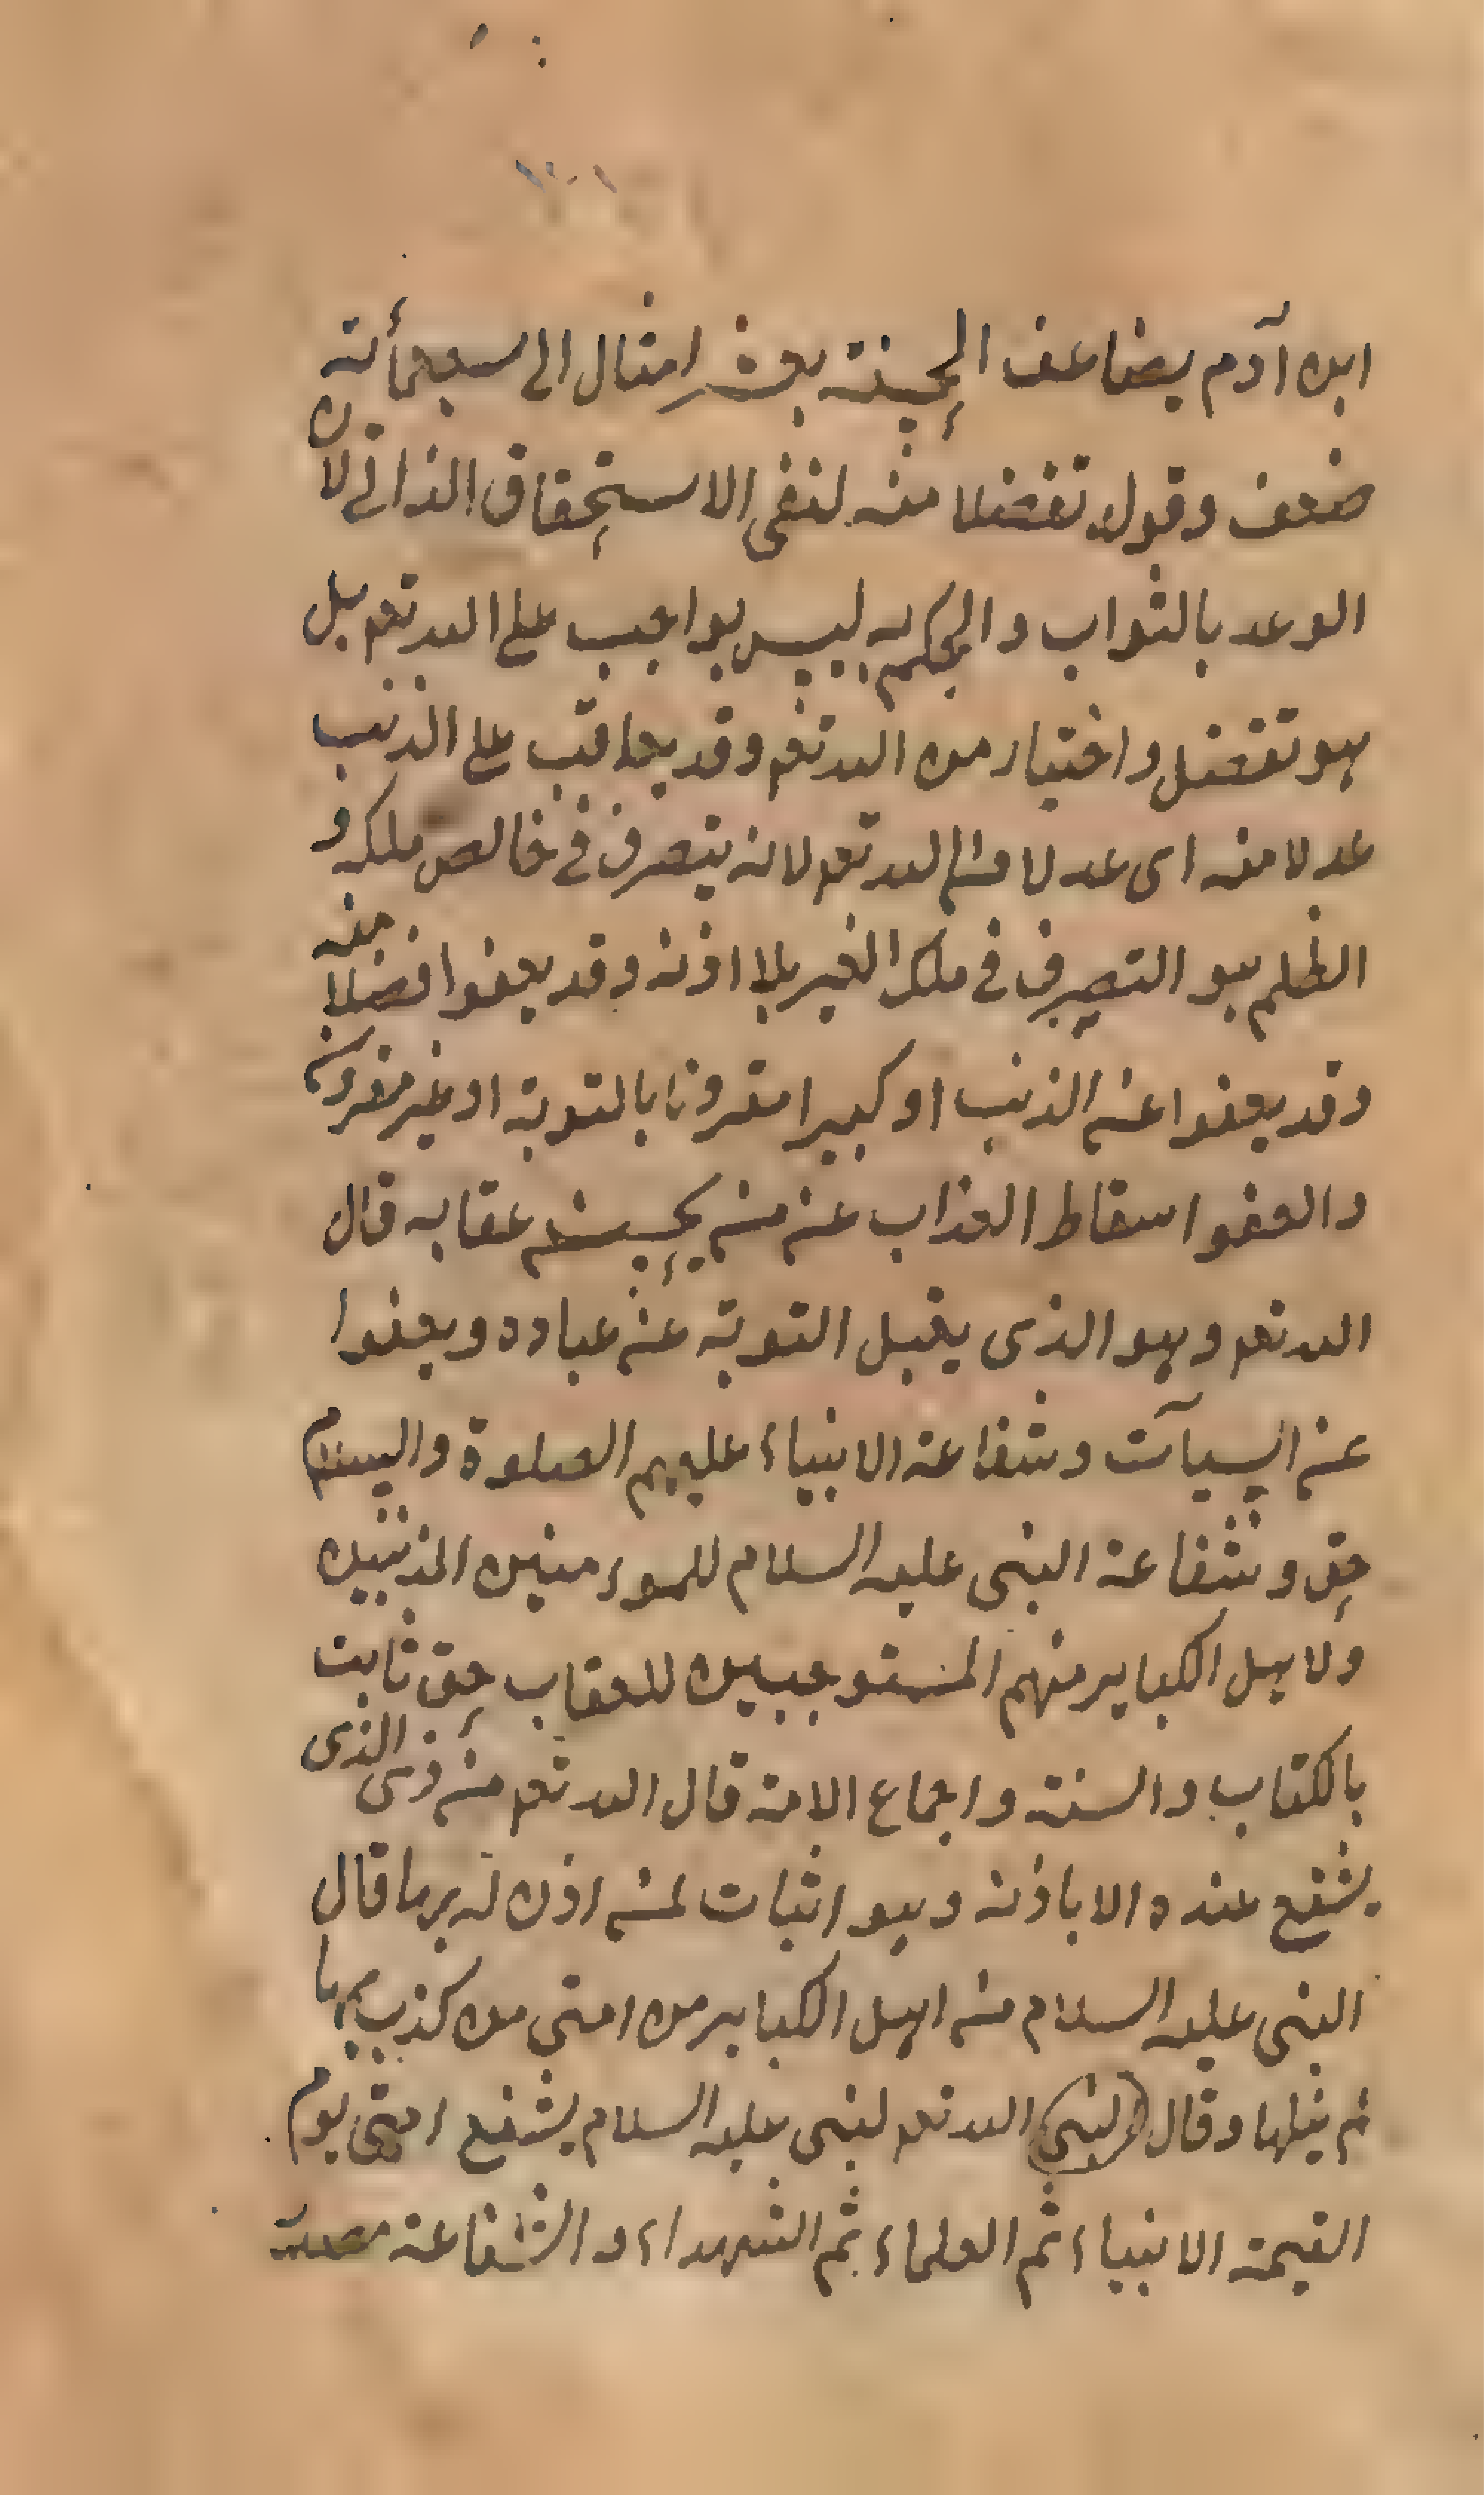 ابن آدم يضاعف الحسنة بعشر امثال الى سبعمأته
ضعف وقوله تفضلا منه لنفى الاستحقاق الذاتى لان
الوعد بالثواب والحكم به ليس بواجب على الله تعم بل
هو تفضل واختيار من الله تعم وقد يعاقب على الذنب
عدلا منه اى عدلا من الله تعم لانه يتصرف فى خالص ملكه و
الظلم هو التصرف فى ملك الغير بلا اذنه وقد يعفوا فضلا منه
وقد يعفوا عن الذنب او كبيرا مقرونا بالتوبة او غير مقرون
والعفو اسقاط العذاب عن من يحسن عقابه قال
الله تعم وهو الذى يقبل التوبة عن عباده ويعفوا
عن السيآت وشفاعة الانبياء عليهم الصلوة والسلام
حق وشفاعة النبى عليه السلام للموءمنين المذنبين
ولاهل الكباير منهم المستوجبين للعقاب حق ثابت
بالكتاب والسنة واجماع الامة قال الله تعم من ذى الذى
يشفع عنده الا باذنه وهو اثبات لمن اذن له بها قال
النبى عليه السلام من اهل الكباير من امتى من كذب بها
لم ينلها وقال (لنبى) الله تعم لنبى عليه السلام يشفع امتى يوم
القيمة الانبياء ثم العلماء ثم الشهداء والشفاعة